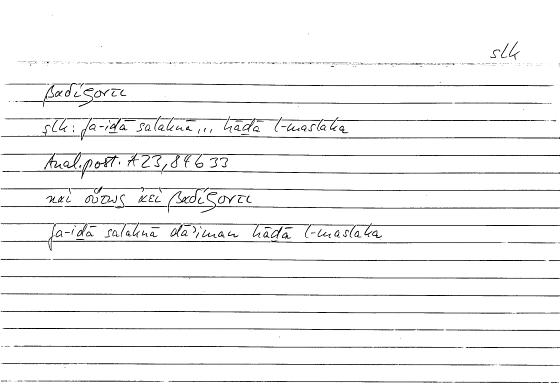 slk
βαδίζοντι
slk: fa-iḏā salaknā... hāḏā l-maslaka
Anal. post. A 23, 84b33
καὶ οὕτως ἀεὶ βαδίζοντι
fa-iḏā salaknā dāʾiman hāḏā l-maslaka